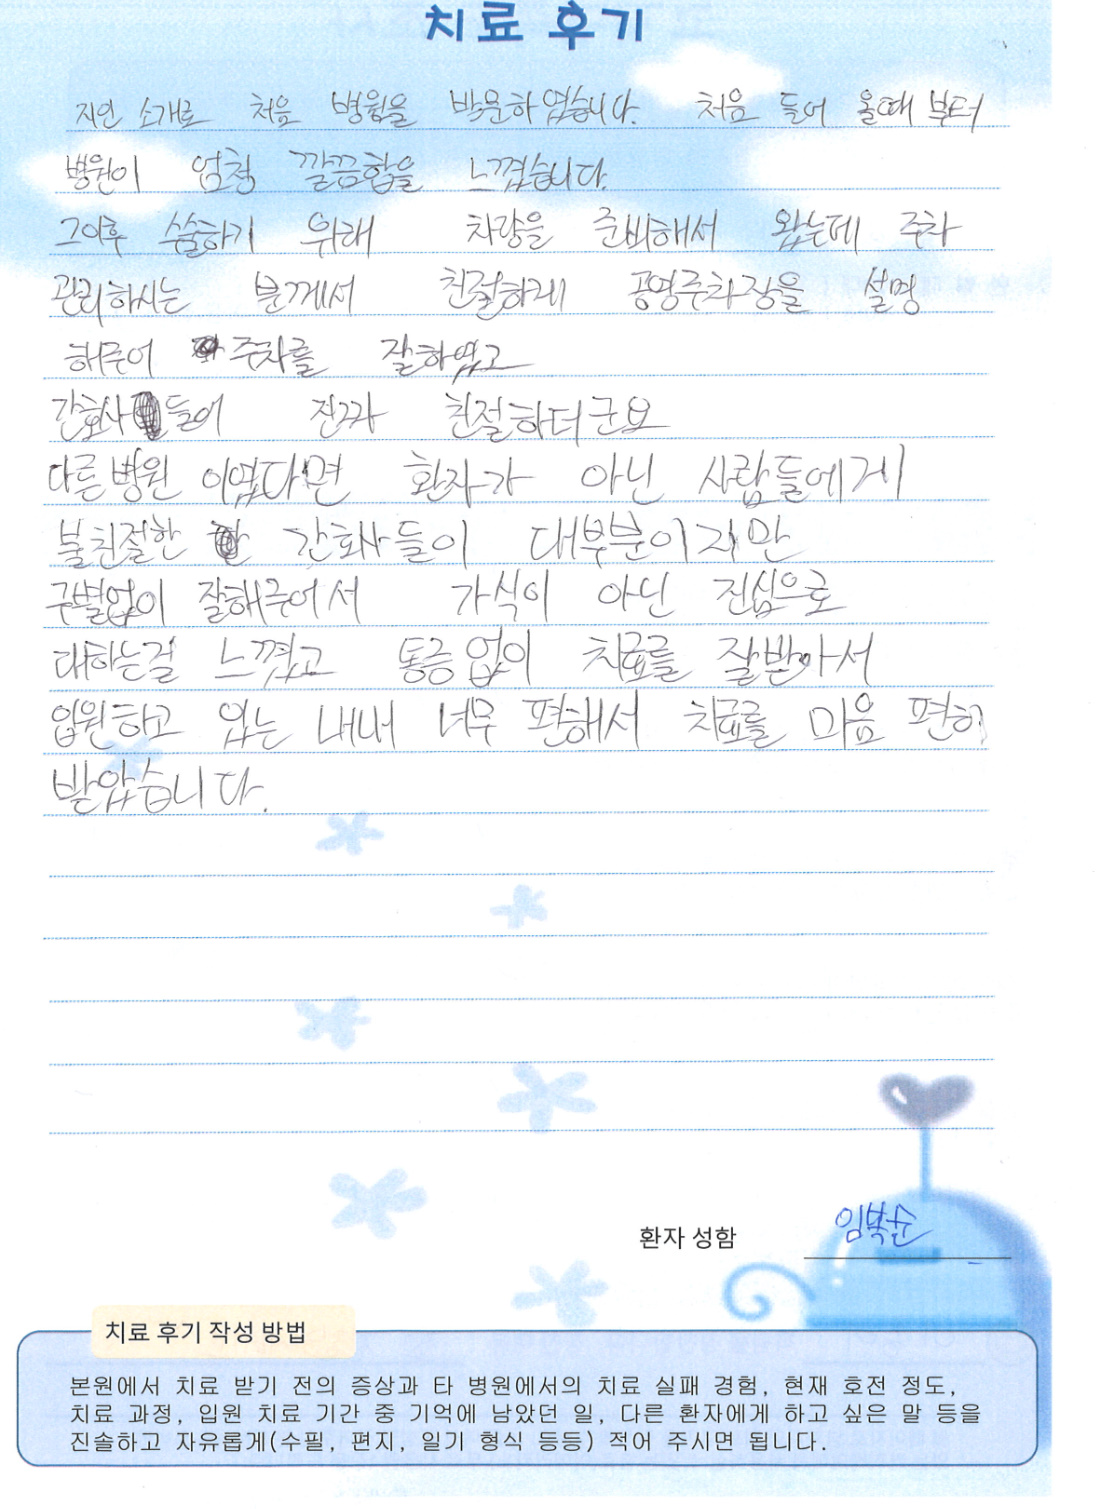 치료 후기
지인 소개로 처음 병원을 방문하였습니다. 처음 들어 올때 부터
병원이 엄청 깔끔함을 느꼈습니다.
그이후 수술하기 위해 차량을 준비해서 왔는데 주차
관리하시는 분께서 친절하게 공영주차장을 설명
해주어 주차를 잘하였고
간호사들이 진짜 친절하더군요
다른병원 이였다면 환자가 아닌 사람들에게
불친절한 간호사들이 대부분이지만
구별없이 잘해주어서 가식이 아닌 진심으로
대하는걸 느꼈고 통증 없이 치료를 잘받아서
입원하고 있는 내내 너무 편해서 치료를 마음 편히
받았습니다.
환자 성함 임복순
치료 후기 작성 방법
본원에서 치료 받기 전의 증상과 타 병원에서의 치료 실패 경험, 현재 호전 정도,
치료 과정, 입원 치료 기간 중 기억에 남았던 일, 다른 환자에게 하고 싶은 말 등을
진솔하고 자유롭게(수필, 편지, 일기 형식 등등) 적어 주시면 됩니다.